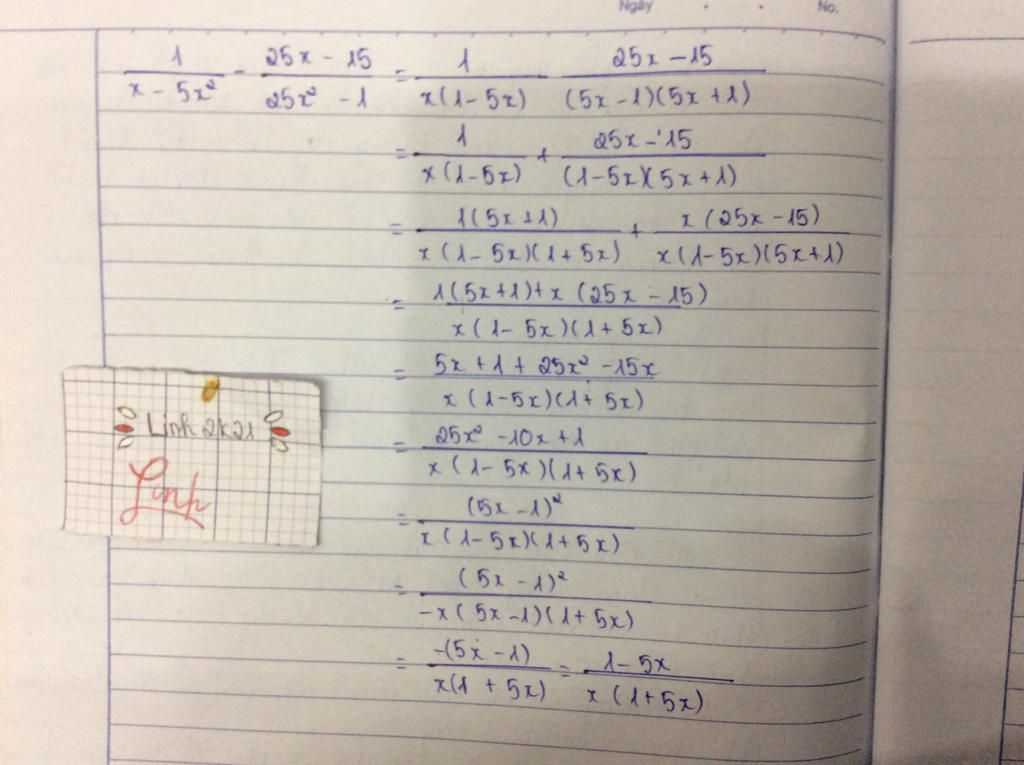 Ngày . . No.
1/(x - 5x²) - (25x - 15)/(25x² - 1) = 1/(x(1 - 5x)) - (25x - 15)/((5x - 1)(5x + 1))
= 1/(x(1 - 5x)) + (25x - 15)/((1 - 5x)(5x + 1))
= 1(5x + 1)/(x(1 - 5x)(1 + 5x)) + x(25x - 15)/(x(1 - 5x)(5x + 1))
= (1(5x + 1) + x(25x - 15))/(x(1 - 5x)(1 + 5x))
= (5x + 1 + 25x² - 15x)/(x(1 - 5x)(1 + 5x))
= (25x² - 10x + 1)/(x(1 - 5x)(1 + 5x))
= (5x - 1)²/(x(1 - 5x)(1 + 5x))
= (5x - 1)²/(-x(5x - 1)(1 + 5x))
= -(5x - 1)/(x(1 + 5x)) = (1 - 5x)/(x(1 + 5x))
Linh 2k21
Linh